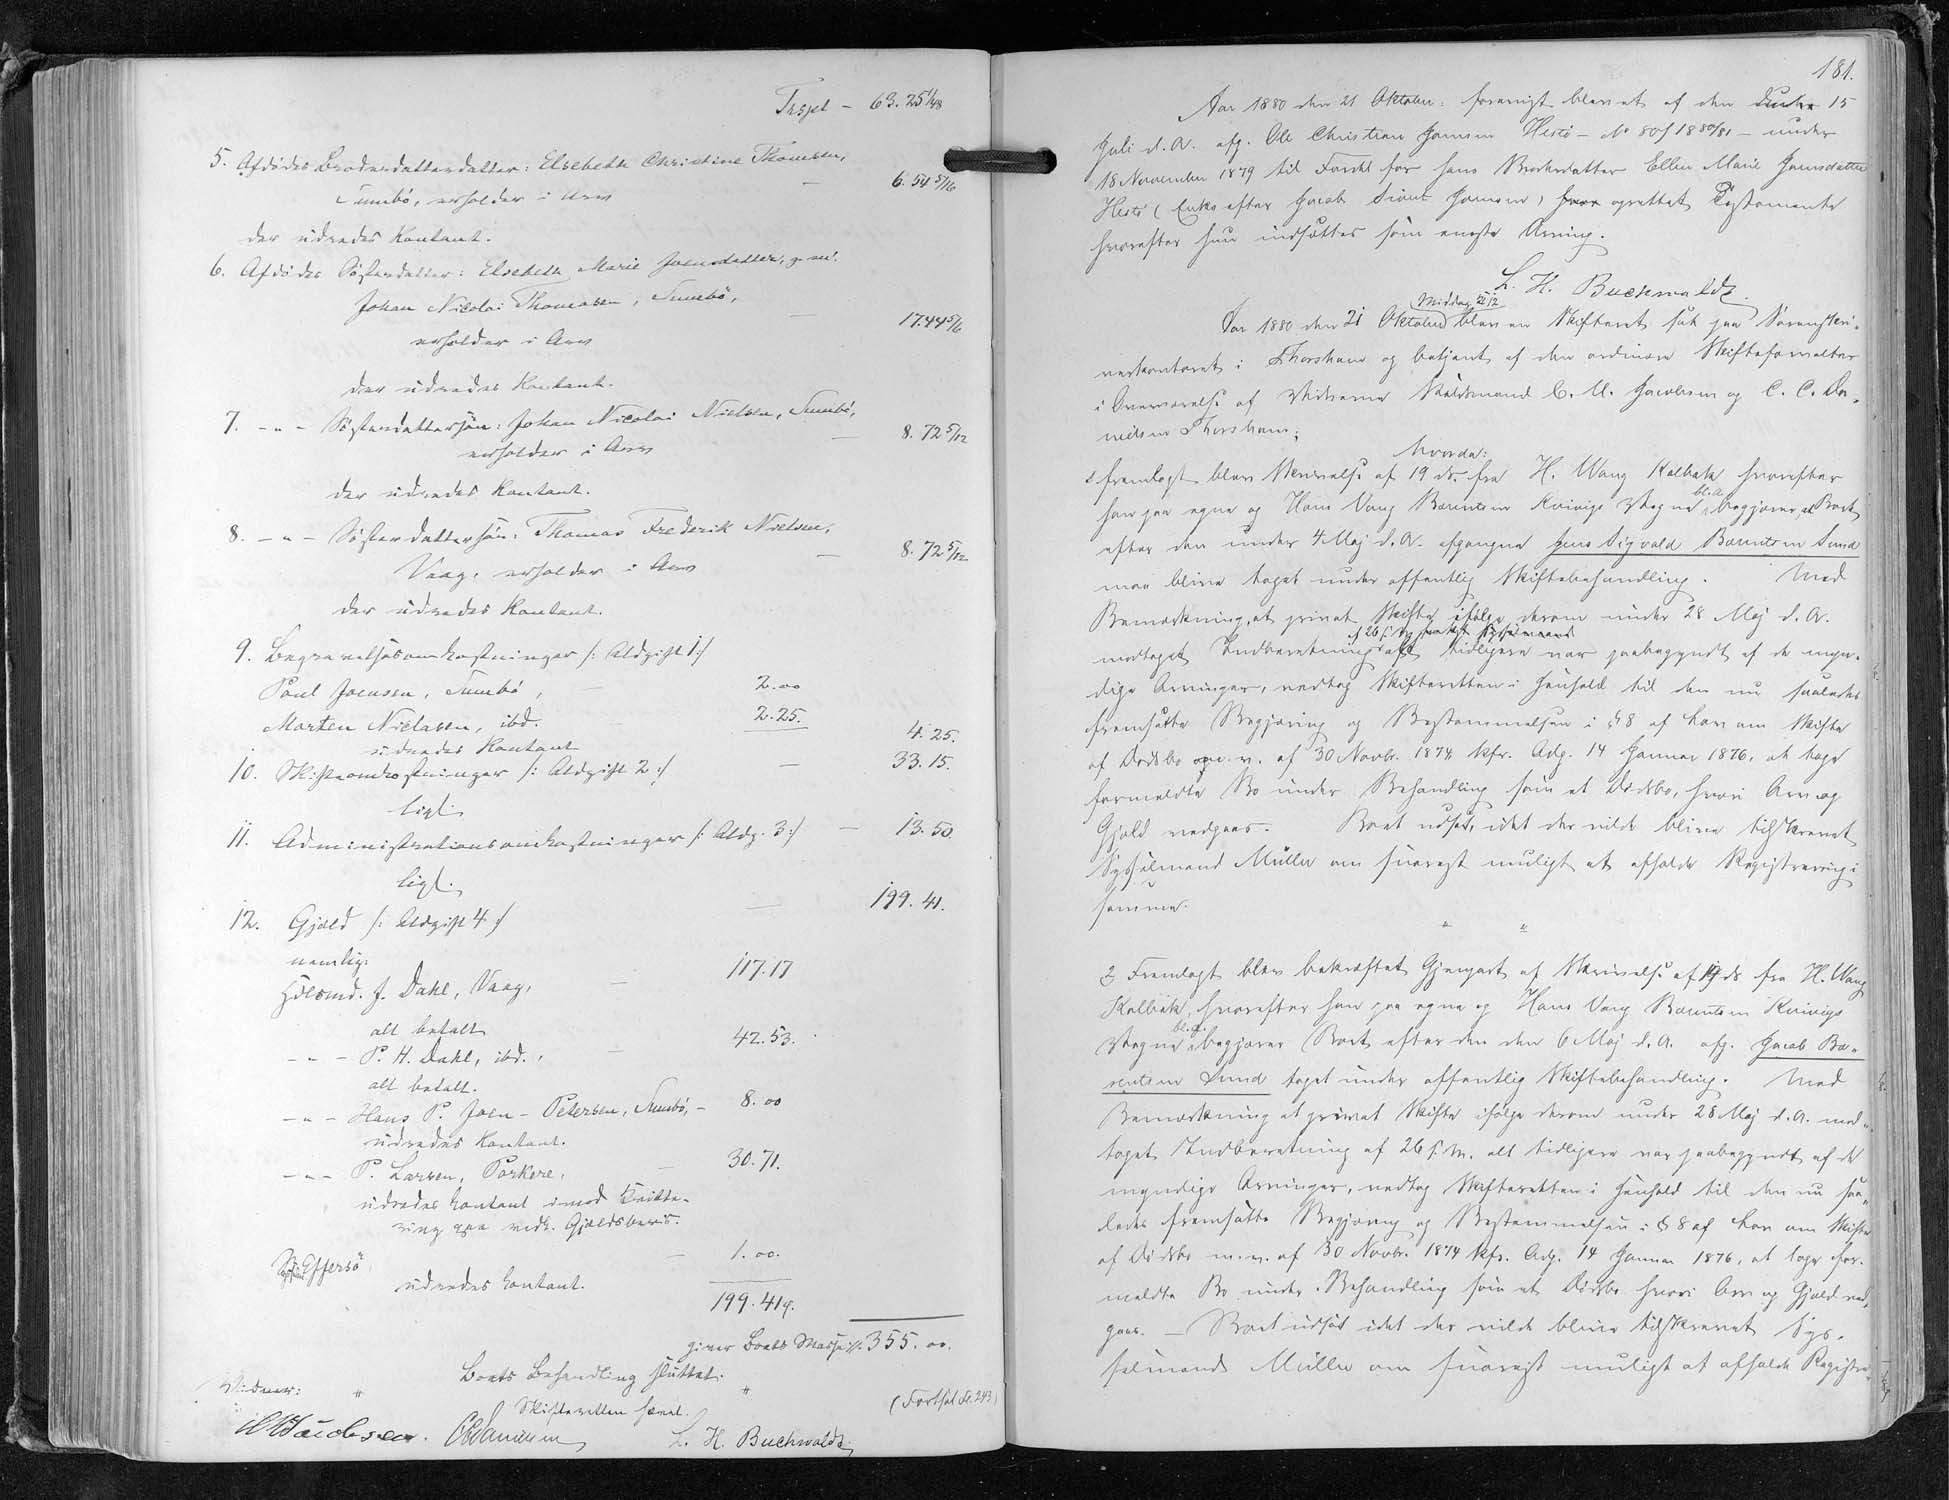 Trspt - 63. 25 1/48
5. Afdødes Broderdatterdatter: Elsebeth Christine Thomsen,
Sumbø, erholder i Arv - 6. 54 5/16
der udredes kontant.
6. Afdødes Søsterdatter: Elsebeth Marie Joensdatter, g. m.
Johan Nicolai Thomasen, Sumbø,
erholder i Arv - 17.44 5/6
der udredes kontant.
7. - " - Søsterdattersøn: Johan Nicolai Nielsen, Sumbø,
erholder i Arv - 8. 72 5/12
der udredes kontant.
8. - " - Søsterdattersøn: Thomas Frederik Nielsen,
Vaag, erholder i Arv - 8. 72 5/12
der udredes kontant.
9. Begravelsesomkostninger /: Udgift 1 :/
Poul Joensen, Sumbø, - 2.00
Morten Nielasen, ibd. 2.25. 4. 25.
udredes kontant
10. Skifteomkostninger /: Udgift 2 :/ - 33. 15.
ligl.
11. Administrationsomkostninger /: Udg. 3 :/ - 13. 50
ligl.
12. Gjæld /: Udgift 4 :/ - 199. 41.
nemlig:
J. Dahl, Vaag, - 117.17
alt betalt
- " - P. H. Dahl, ibd., - 42.53.
alt betalt.
- " - Hans P. Joen-Petersen, Sumbø, - 8.00
udredes kontant.
- " - P. Larsen, Porkere, - 30.71.
udredes kontant imod Kvitte-
ring paa vedk. Gjældsbevis.
Effersø, - 1.00.
udredes kontant.
199.41
giver Boets Masse 355. 00.
Boets Behandling sluttet.
Vidner: " "
Skifteretten hævet. (Forts. fol. 243)
Jacobsen. Danielsen L. H. Buchwaldt
181.
Aar 1880 den 21 Oktober: forevigt blev et af den under 15
Juli d. A. afg. Ole Christian Joensen Hestø - No 80/1880/81 - under
18 November 1879 til Fordel for hans Broderdatter Ellen Marie Joensdatter
Hestø (Enke efter Jacob Joensen) oprettet Testamente
hvorefter hun indsættes som eneste Arving.
L. H. Buchwaldt.
Middag Kl 12
Aar 1880 den 21 Oktober blev en Skifteret sat paa Sorenskri-
verkontoret i Thorshavn og betjent af den ordinære Skifteforvalter
i Overværelse af Vidnerne Skoldsmand C. M. Jacobsen og C. C. Da-
nielsen Thorshavn;
Hvorda:
1 fremlagt blev Skrivelse af 19 ds. fra H. Wang Kolbak hvorefter
bl. a.
han paa egne og Hans Vang Bærentsen Kvivigs Vegne begjærer, at Boet
efter den under 4 Maj d. A. afgangne Jens Sigvald Bærentsen Sund
maa blive taget under offentlig Skiftebehandling. Med
Bemærkning, at privat Skifte ifølge derom under 28 Maj d. A.
af 26 s. M.
modtaget Indberetning alt tidligere var paabegyndt af de myn-
dige Arvinger, vedtog Skifteretten i Henhold til den nu saaledes
fremsatte Begjæring og Bestemmelsen i § 8 af Lov om Skifte
af Dødsbo m. v. af 30 Novbr. 1874 kfr. Adg. 14 Januar 1876, at tage
formeldte Bo under Behandling som et Dødsbo, hvori Arv og
Gjæld vedgaaes. Boet udsat, idet der vilde blive tilskrevet
Sysselmand Müller om snarest muligt at afholde Registrering i
samme.
" "
2 Fremlagt blev bekræftet Gjenpart af Skrivelse af 19 ds fra H. Wang
Kolbak, hvorefter han paa egne og Hans Vang Bærentsen Kvivigs
bl. a.
Vegne begjærer Boet efter den den 6 Maj d. A. afg. Jacob Bæ-
rentsen Sund taget under offentlig Skiftebehandling. Med
Bemærkning at privat Skifte ifølge derom under 28 Maj d. A. mod-
taget Indberetning af 26 s. M. alt tidligere var paabegyndt af de
myndige Arvinger, vedtog Skifteretten i Henhold til den nu saa-
ledes fremsatte Begjæring og Bestemmelsen i § 8 af Lov om Skifte
af Dødsbo m. v. af 30 Novbr. 1874 kfr. Adg. 14 Januar 1876, at tage for-
meldte Bo under Behandling som et Dødsbo hvori Arv og Gjæld ved-
gaaes. - Boet udsat idet der vilde blive tilskrevet Sys-
selmand Müller om snarest muligt at afholde Registre-